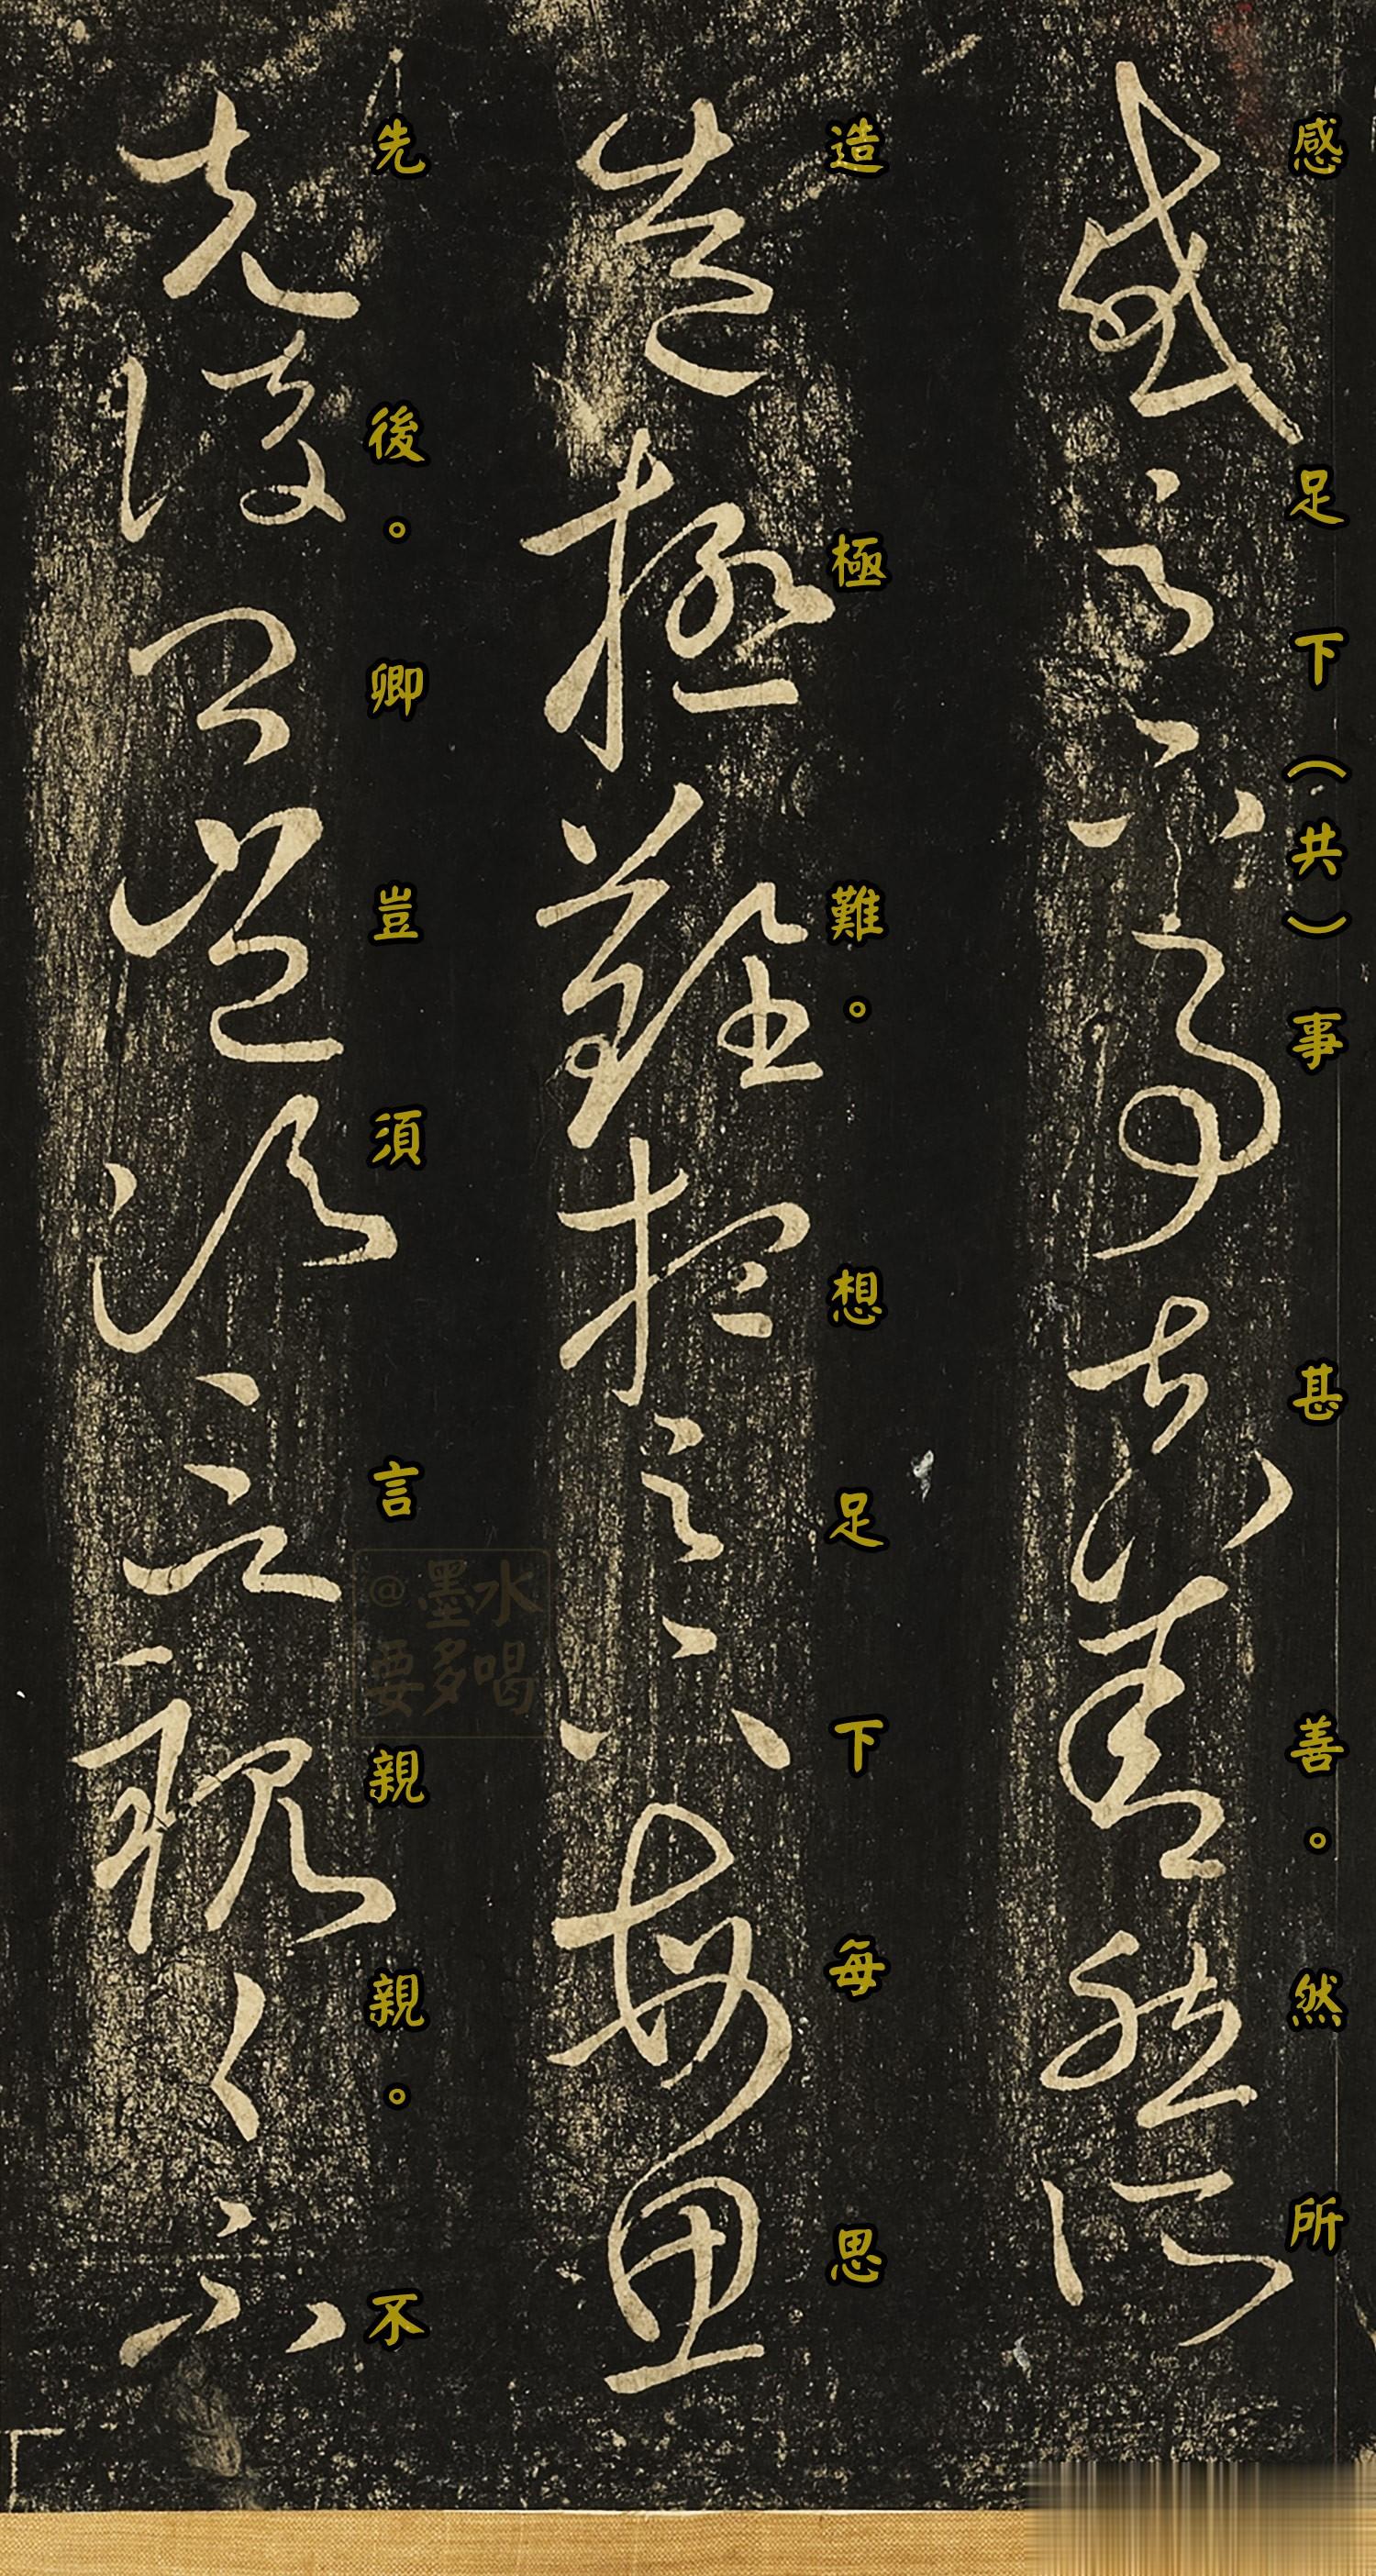 感足下（共）事甚善。然所
造極難。想足下每思
先後。卿豈須言親親。不
@墨水
要多喝